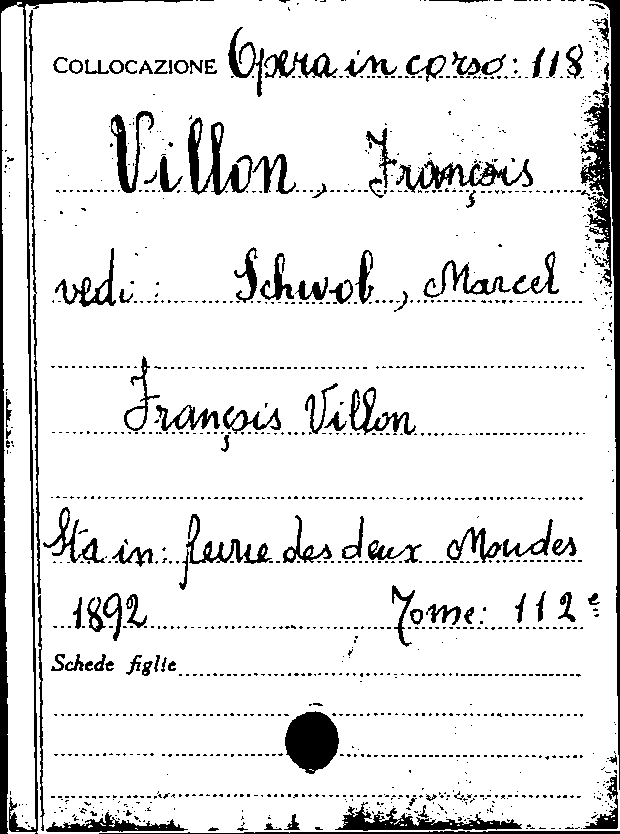 COLLOCAZIONE Opera in corso: 118
Villon, François
vedi: Schwob, Marcel
François Villon
Sta in: Revue des deux Mondes
1892 Tome: 112e
Schede figlie